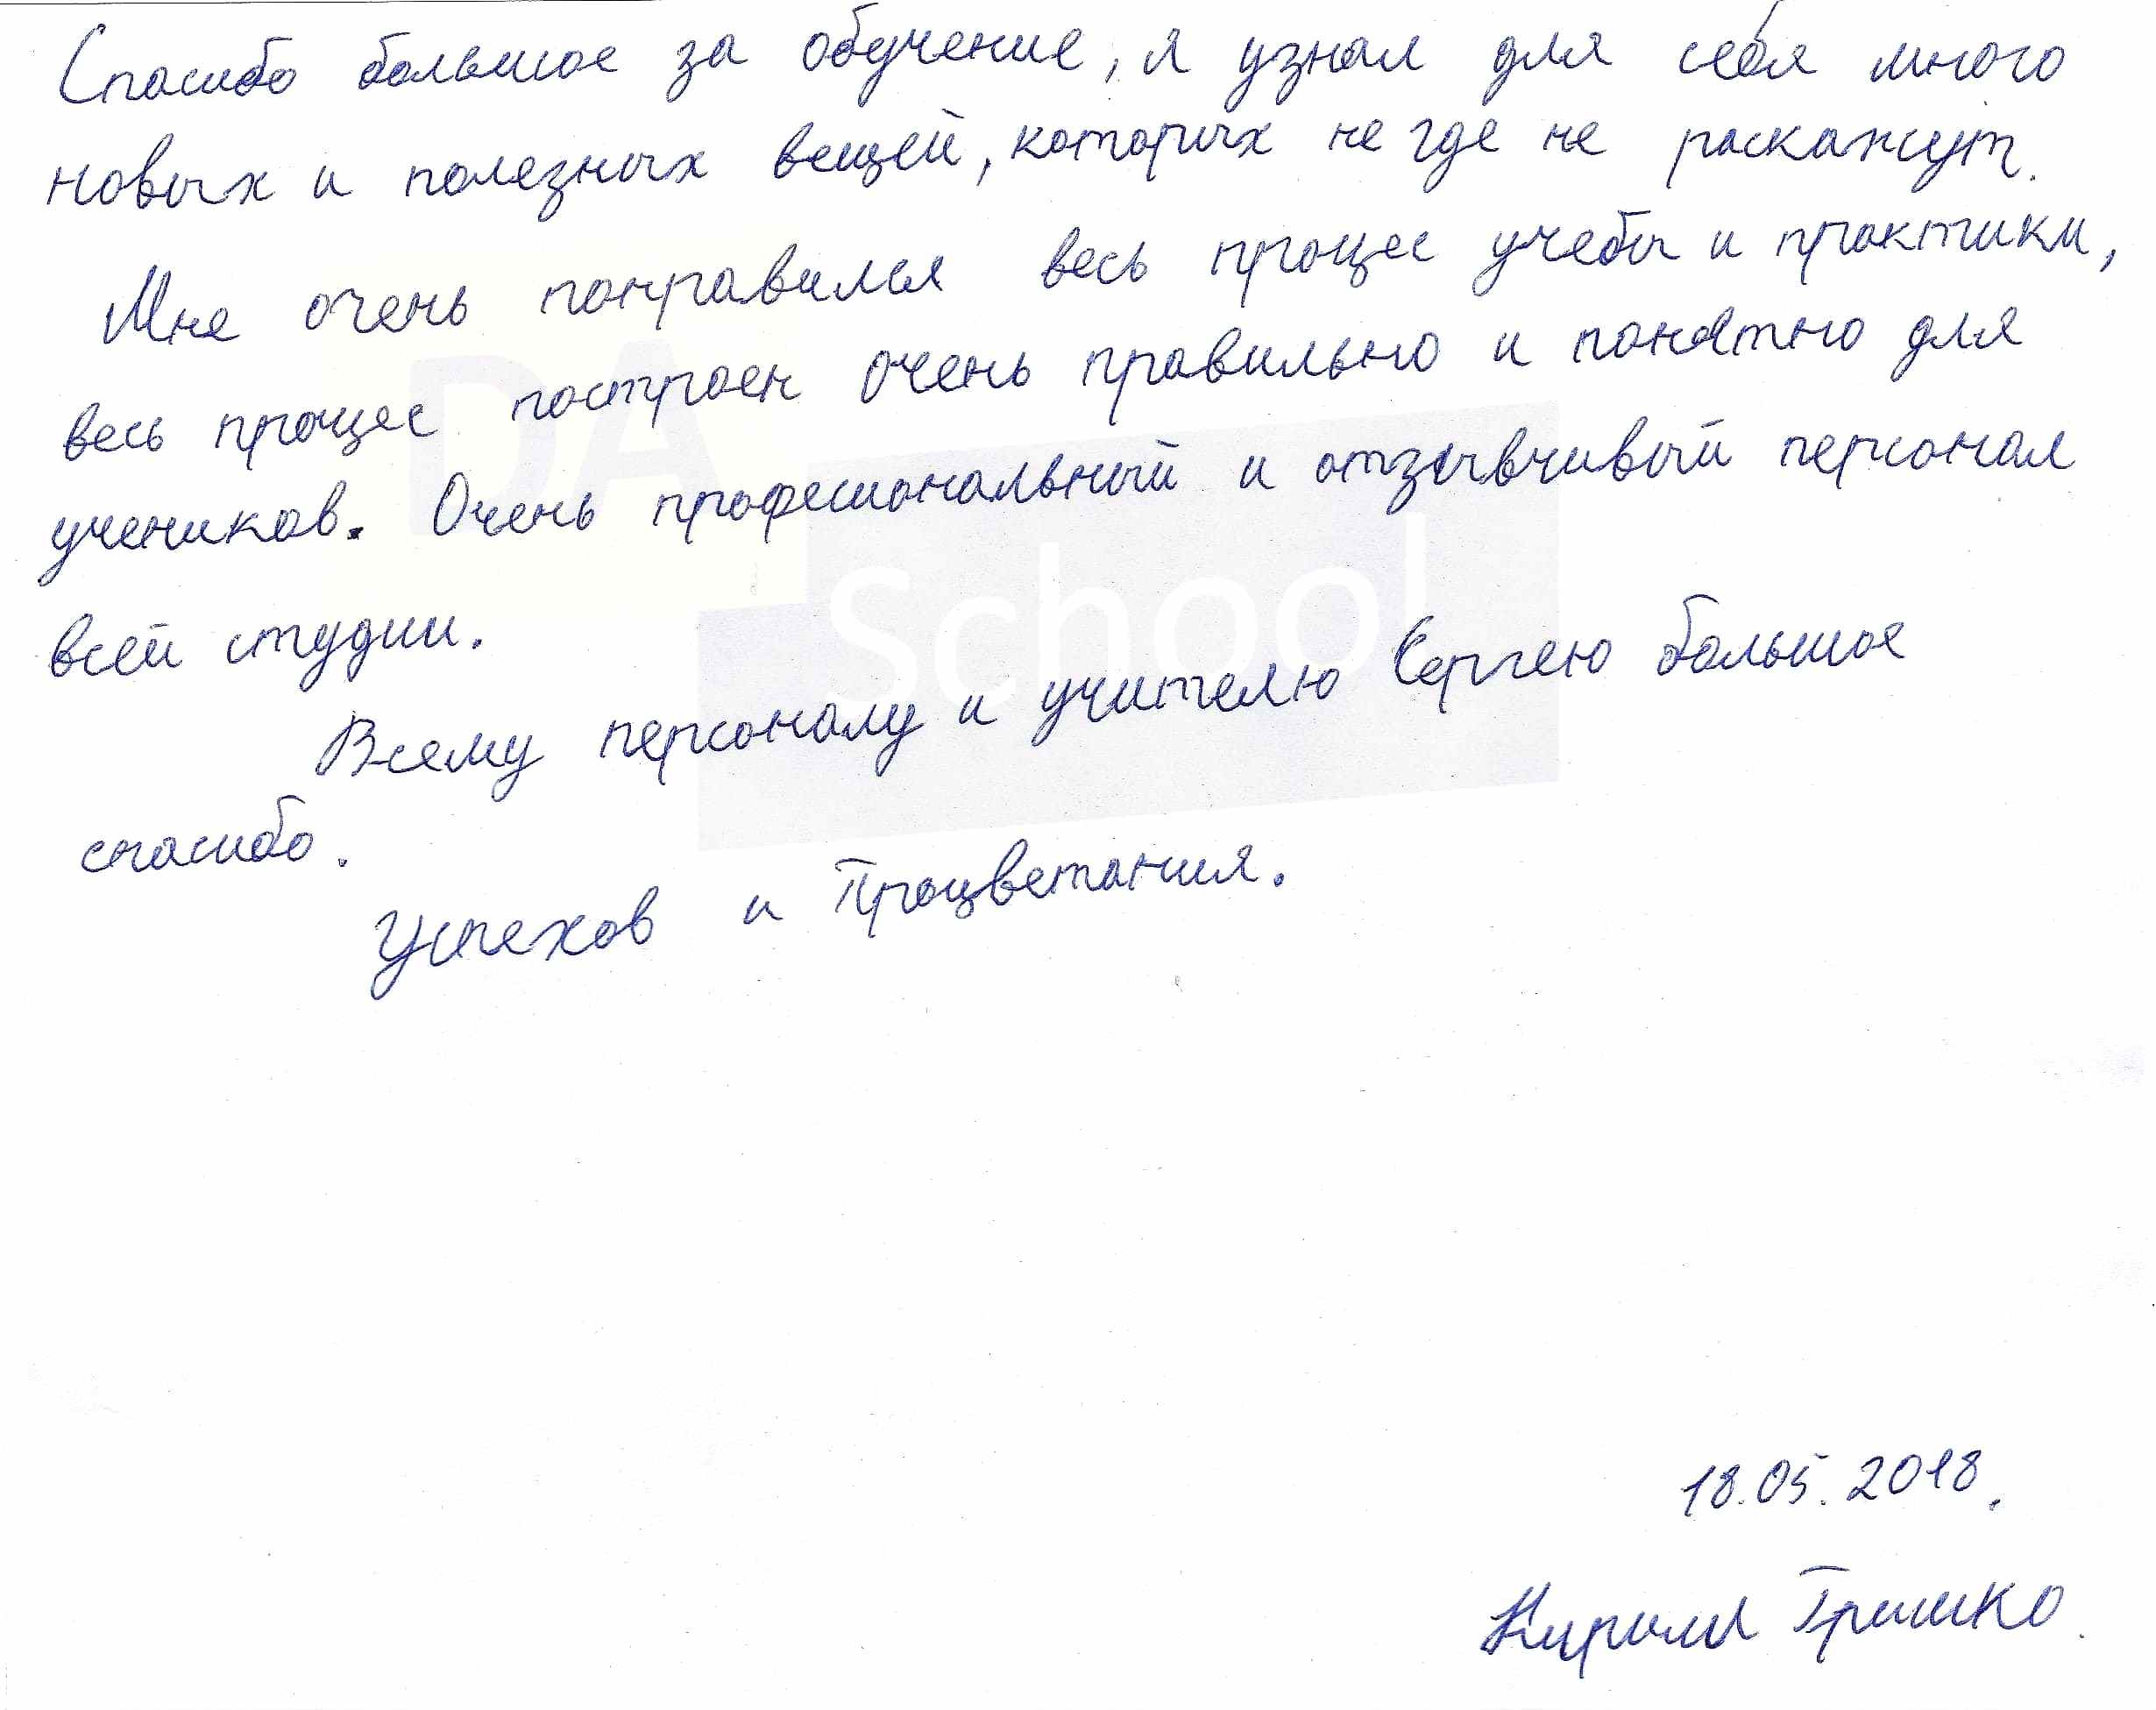 Спасибо большое за обучение, я узнал для себя много
новых и полезных вещей, которых не где не раскажут.
Мне очень понравился весь процес учебы и практики,
весь процес построен очень правильно и понятно для
учеников. Очень професиональный и отзывчивый персонал
всей студии.
Всему персоналу и учителю Сергею большое
спасибо.
Успехов и Процветания.
18.05.2018.
Кирилл Гришко.
DA
School